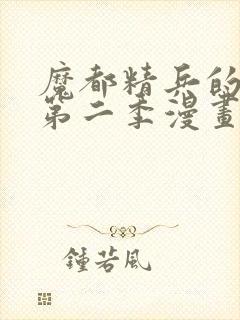 魔都精兵的
第二季漫畫
鍾若風